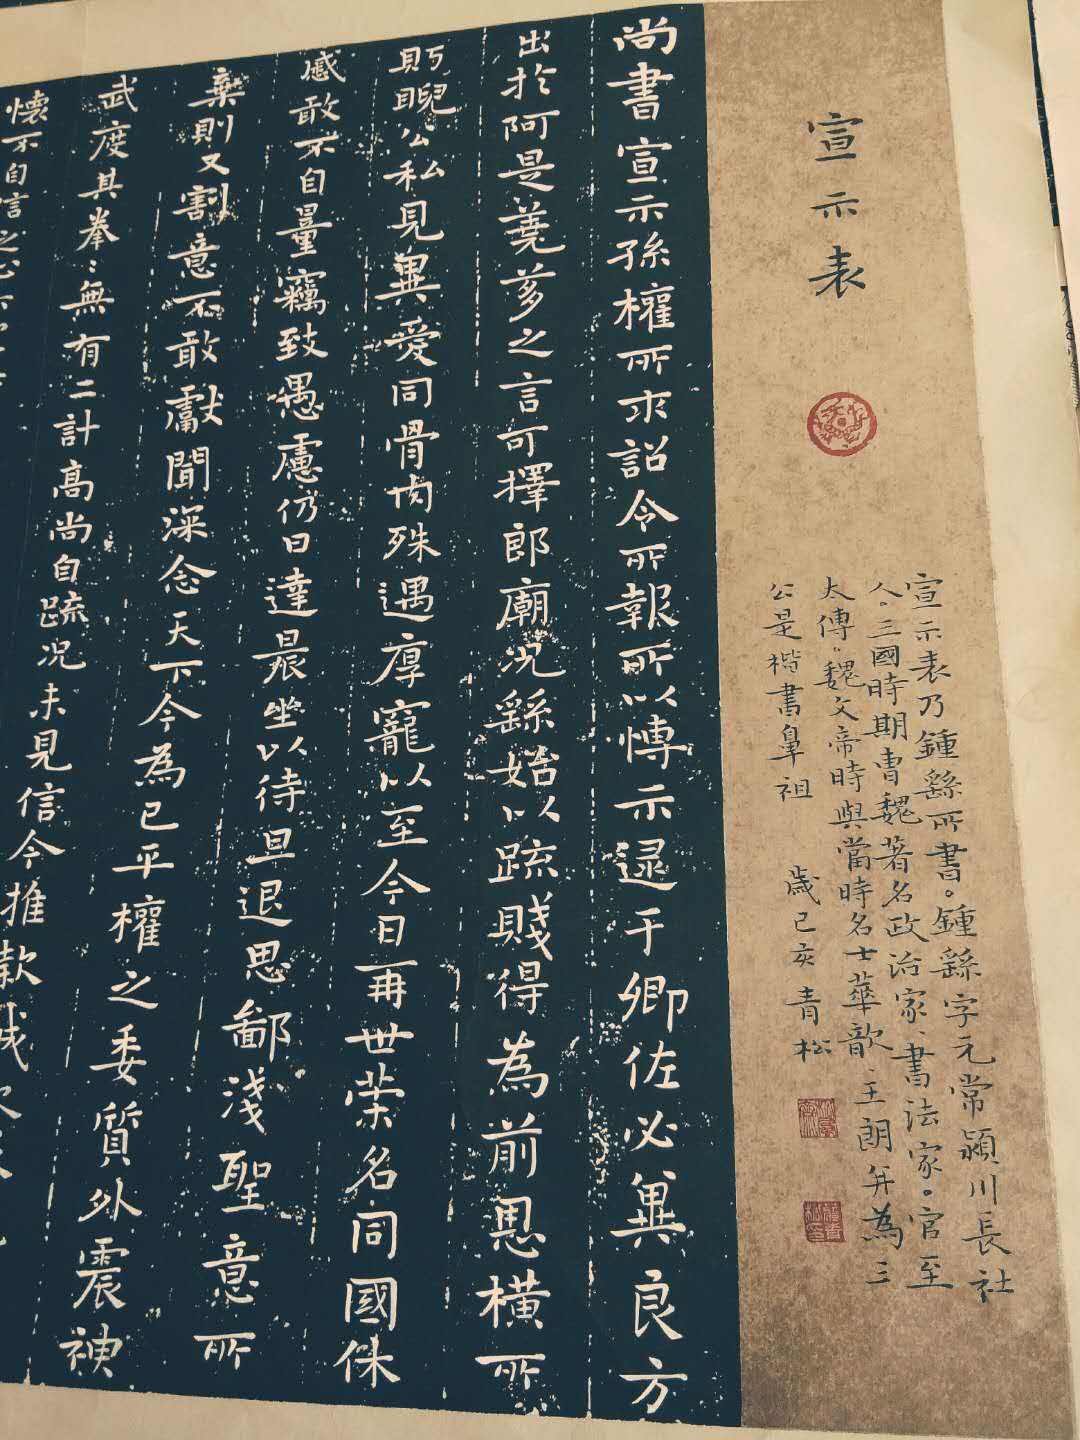 宣示表
宣示表乃鍾繇所書。鍾繇字元常潁川長社
人。三國時期曹魏著名政治家、書法家。官至
太傅。魏文帝時與當時名士華歆、王朗并為三
公是楷書鼻祖
歲己亥青松
尚書宣示孫權所求詔令所報所以博示逮于卿佐必冀良方
出於阿是蒭荛之言可擇郎廟況繇始以疏賤得為前恩橫所
眄睨公私見異愛同骨肉殊遇厚寵以至今日再世榮名同國休
感敢不自量竊致愚慮仍日達晨坐以待旦退思鄙淺聖意所
棄則又割意不敢獻聞深念天下今為已平權之委質外震神
武度其拳:無有二計高尚自疏況未見信今推款誠
懷不自信之心